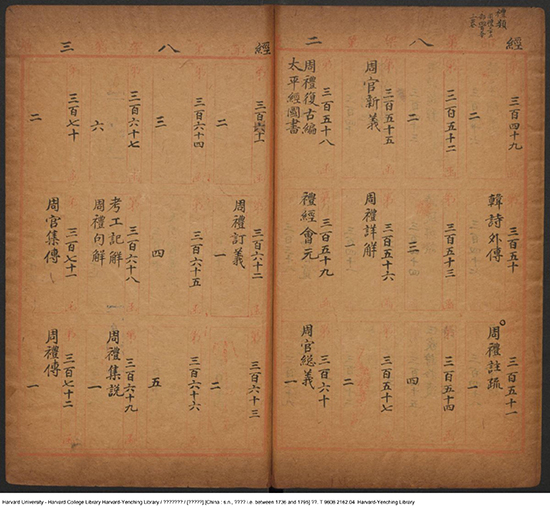 禮類
經 八 二
三百四十九
二
三百五十
韓詩外傳
三百五十一
周禮註疏
一
三百五十二
二
三百五十三
三
三百五十四
四
三百五十五
周官新義
三百五十六
周禮詳解
三百五十七
二
三百五十八
周禮復古編
太平經圖書
三百五十九
禮經會元
三百六十
周官總義
一
經 八 三
三百六十一
二
三百六十二
周禮訂義
一
三百六十三
二
三百六十四
三
三百六十五
四
三百六十六
五
三百六十七
六
三百六十八
考工記解
周禮句解
三百六十九
周禮集説
一
三百七十
二
三百七十一
周官集傳
三百七十二
周禮傳
一
Harvard University - Harvard College Library Harvard-Yenching Library / ??????? / [?????] [China : s.n., ???? i.e. between 1736 and 1795] ??. T 9608 2142.04 Harvard-Yenching Library